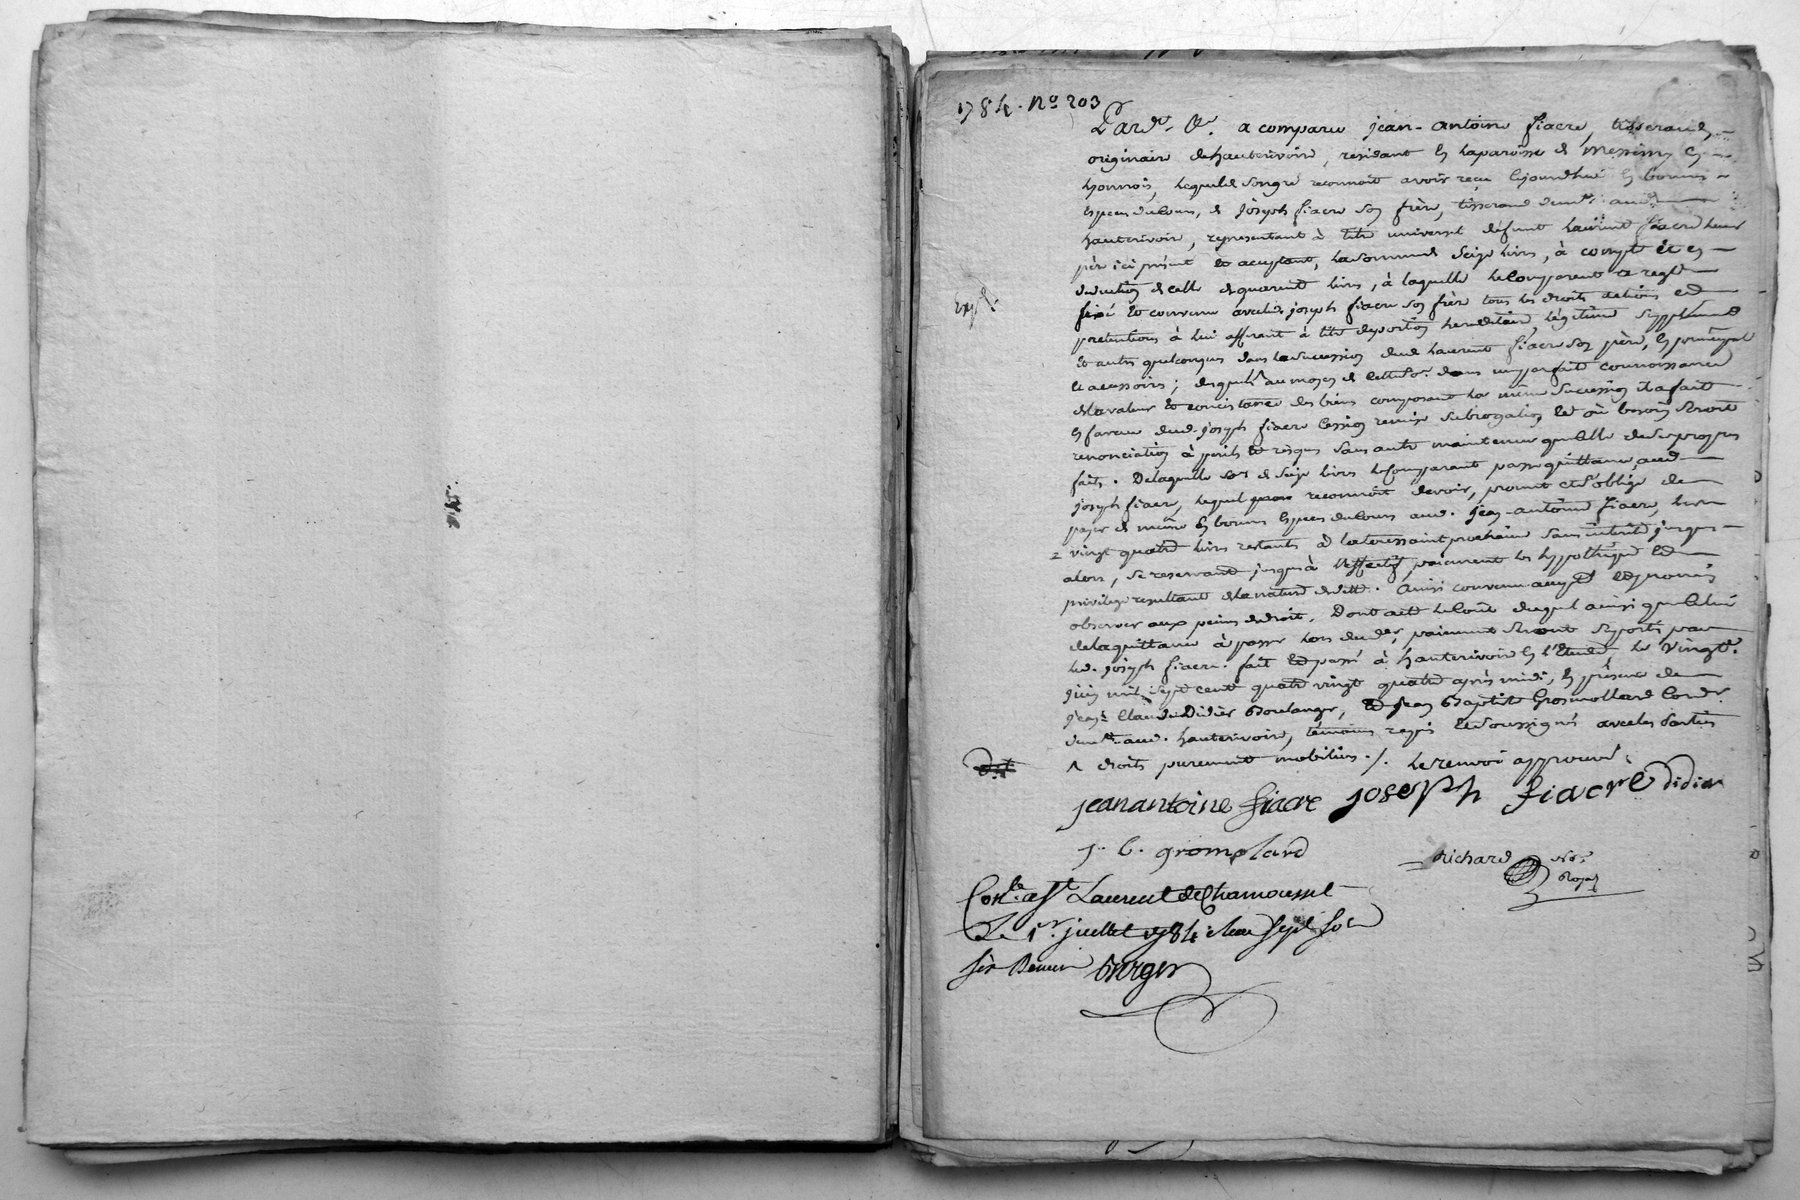 1784. No 203
Pard.t &c. a comparu jean-antoine fiacre, tisserand,
originaire de hauterivoire, residant en la paroisse de messimy en
Lyonnois, lequel de son gré reconnoit avoir reçu cejourdhui en bonnes
especes du cours, de joseph fiacre son frère, tisserand dem.t aud.
hauterivoire, representant à titre universel défunt Laurent fiacre leur
père ici présent et acceptant, la somme de seize livres, à compte et en
deduction de celle de quarente livres, à laquelle le comparant a reglé
fixé et convenu avec led. joseph fiacre son frère tous les droits actions et
pretentions à lui afferant à titre de portion hereditaire, légitime supplément
et autres quelconques dans la succession dud. Laurent fiacre son père, en principal
et accessoires; desquels au moyen de cette so.e dans un parfait connoissance
de la valeur et concistance des biens composant la même succession il a fait
en faveur dud. joseph fiacre cession remise subrogation et où besoin seroit
renonciation à perils et risques sans autre maintenue que celle de ses propres
faits. De laquelle so.e de seize livres le comparant passe quittance aud.
joseph fiacre, lequel reconnoit devoir, promet et s'oblige de
payer de même en bonnes especes du cours aud. jean-antoine fiacre, les
vingt quatre livres restants à la toussaint prochaine sans intérêt jusques
alors, se reservant jusqu'à l'effectif paiement les hypothèque et
privilege resultant de la nature de dette. Ainsi convenu accepté et promis
observer aux peines de droit. Dont acte le coût duquel ainsi que celui
de la quittance à passer lors du der. paiement seront suportés par
led. joseph fiacre. fait et passé à hauterivoire en l'Etude le vingt
juin mil sept cent quatre vingt quatre après midi, en présence de
jean claude Didier Boulanger, et jean Baptiste Grosmollard Cord.r
dem.t aud. hauterivoire, témoins requis et soussignés avec les Parties
^ droits purement mobiliers ./. le renvoi approuvé
jeanantoine fiacre joseph fiacre didier
j. b. gromolard
Richard No.re
Royal
Con.lé à S.t Laurent de Chamousset
Le 1.er juillet 1784 sept sols
six deniers Burger